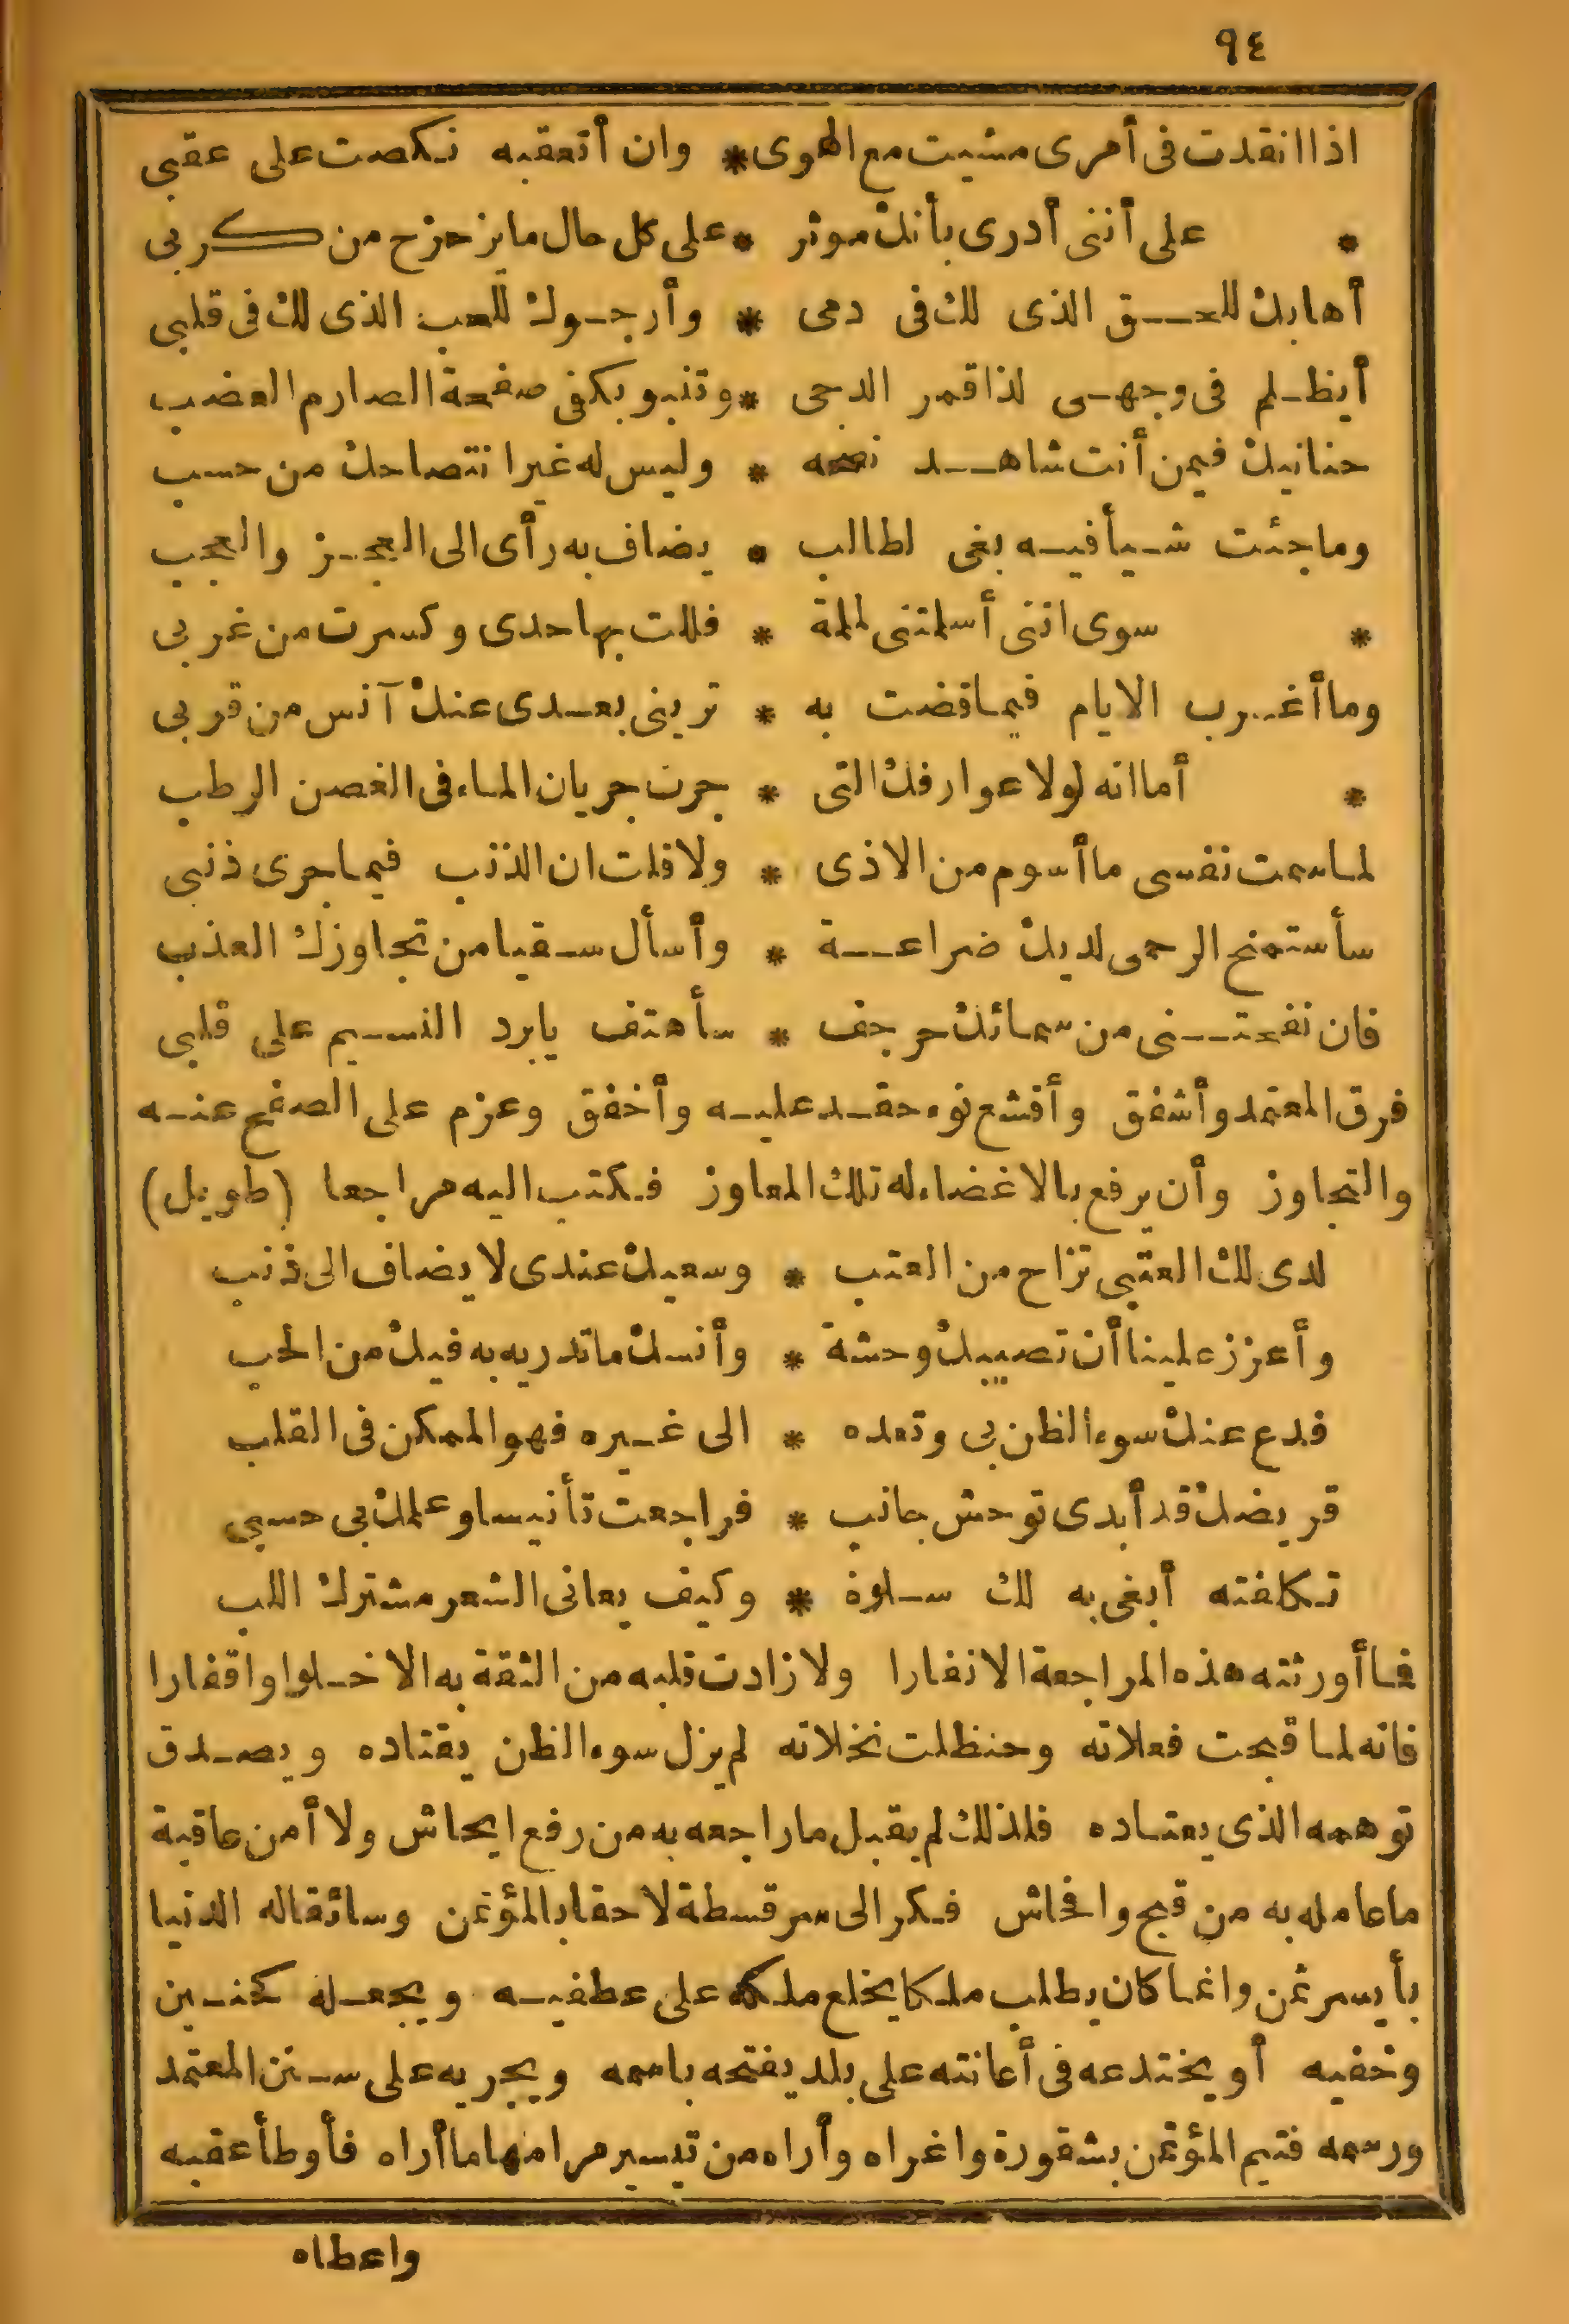 ٩٤
اذا انقدت فى أمرى مشيت مع الهوى * وان أتعقبه نكصت على عقبى
* على أننى أدرى بأنك موثر * على كل حال ما يزحزح من كربى
أهابك للحق الذى لك فى دمى * وأرجوك للحب الذى لك فى قلبى
أيظلم فى وجهى لذا قمر الدجى * وتنبو بكفى صفحة الصارم العضب
حنانيك فيمن أنت شاهد نصحه * وليس له غير انتصاحك من حسب
وما جئت شيأ فيه بغى لطالب * يضاف به رأى الى العجز والعجب
* سوى اننى أسلمتنى لملمة * فللت بها حدى وكسرت من غربى
وما أغرب الايام فيما قضت به * ترينى بعدى عنك آنس من قربى
* أما انه لولا عوارفك التى * جرت جريان الماء فى الغصن الرطب
لما سمت نفسى ما أسوم من الاذى * ولا قلت ان الذنب فيما جرى ذنبى
سأستمنح الرحمى لديك ضراعة * وأسأل سقيا من تجاوزك العذب
فان نفحتنى من سمائك حرجف * سأهتف يا برد النسيم على قلبى
فرق المعتمد وأشفق وأقشع نوء حقد عليه وأخفق وعزم على الصفح عنه
والتجاوز وأن يرفع بالاغضاء له تلك المعاوز فكتب اليه مراجعا (طويل)
لدى لك العتبى تزاح من العتب * وسعيك عندى لا يضاف الى ذنب
وأعزز علينا أن تصيبك وحشة * وأنسك ما تدريه به فيك من الحب
فدع عنك سوء الظن بى وتعده * الى غيره فهو الممكن فى القلب
قريضك قد أبدى توحش جانب * فراجعت تأنيسا وعلمك بى حسبى
تكلفته أبغى به لك سلوة * وكيف يعانى الشعر مشترك اللب
فما أورثته هذه المراجعة الانفارا ولا زادت قلبه من الثقة به الا خلوا واقفارا
فانه لما قبحت فعلاته وحنظلت نخلاته لم يزل سوء الظن يقتاده ويصدق
توهمه الذى يعتاده فلذلك لم يقبل ما راجعه به من رفع ايحاش ولا أمن عاقبة
ما عامله به من قبح وافحاش فكر الى سرقسطة لاحقا بالمؤتمن وسائقا له الدنيا
بأيسر ثمن وانما كان يطلب ملكا يخلع ملكه على عطفيه ويجعله كخنين
وخفيه أو يختدعه فى أعانته على بلد يفتحه باسمه ويجريه على سنن المعتمد
ورسمه فتيم المؤتمن بشقورة واغراه وأراه من تيسير مرامها ما أراه فأوطأ عقبه
واعطاه